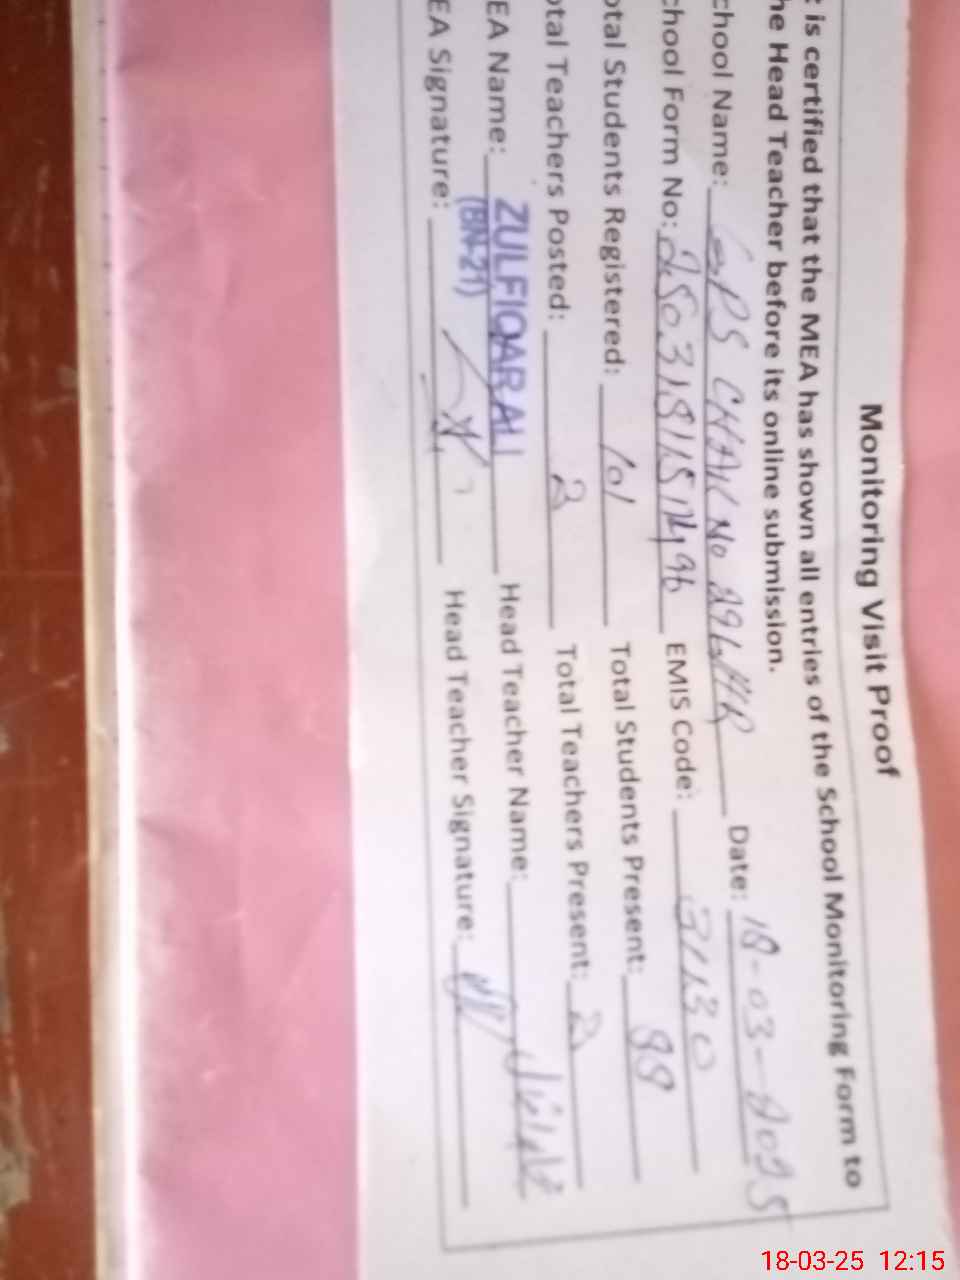 Monitoring Visit Proof
t is certified that the MEA has shown all entries of the School Monitoring Form to
he Head Teacher before its online submission.
chool Name: GPS CHAK No 296/HR Date: 18-03-2025
chool Form No: EMIS Code: 31130
otal Students Registered: 101 Total Students Present: 88
otal Teachers Posted: 2 Total Teachers Present: 2
EA Name: ZULFIQAR ALI Head Teacher Name:
(BN-21)
EA Signature: Head Teacher Signature:
18-03-25 12:15